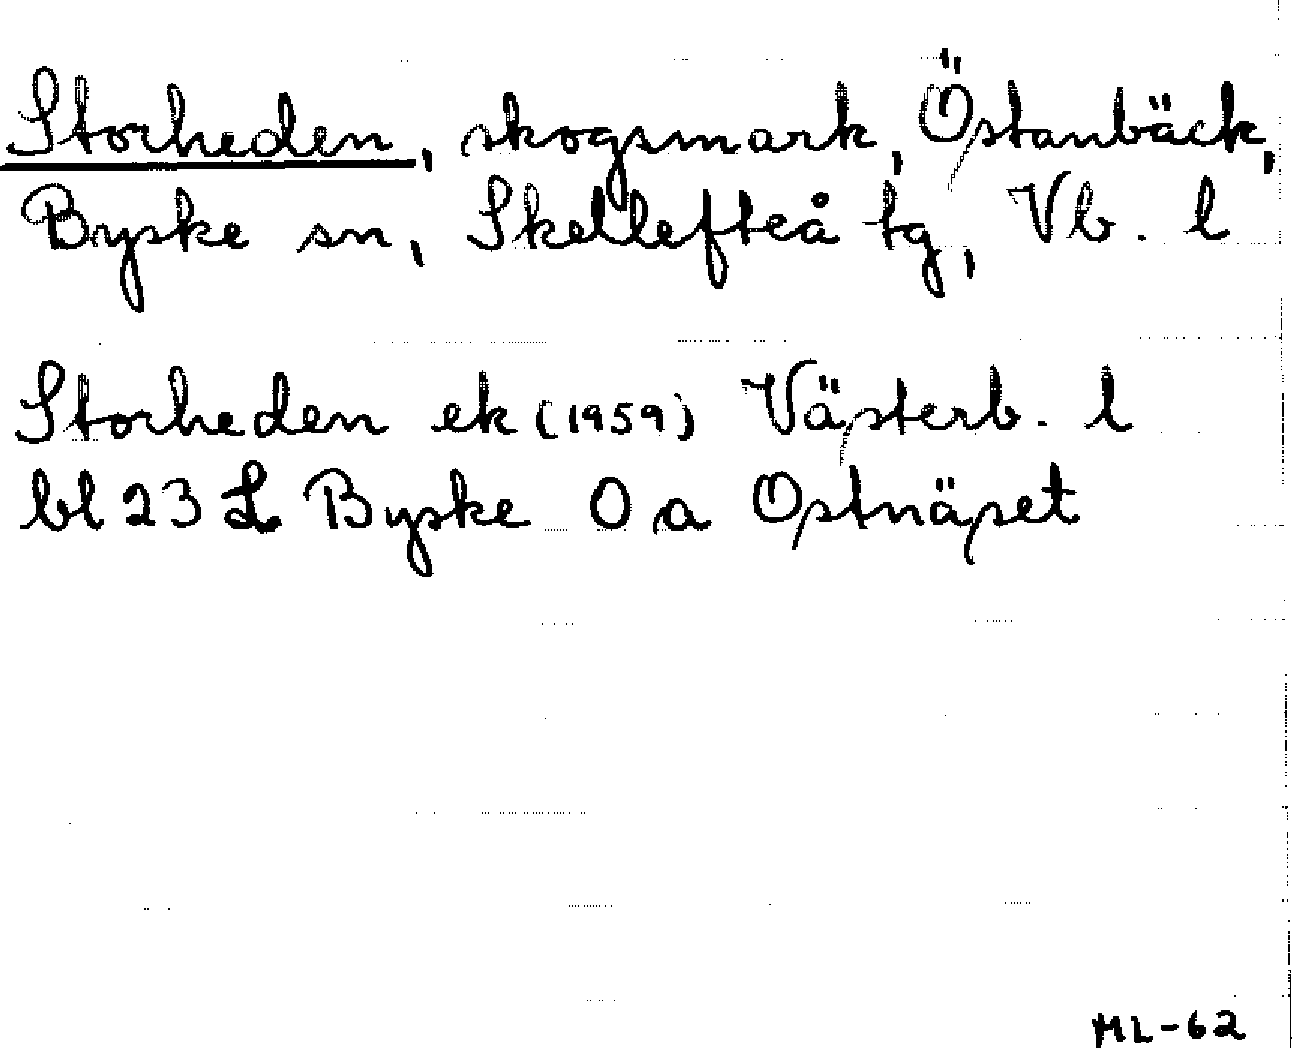 Storheden, skogsmark, Östanbäck,
Byske sn, Skellefteå tg, Vb. l
Storheden ek (1959) Västerb. l
bl 23 L Byske 0 a Ostnäset
ML-62